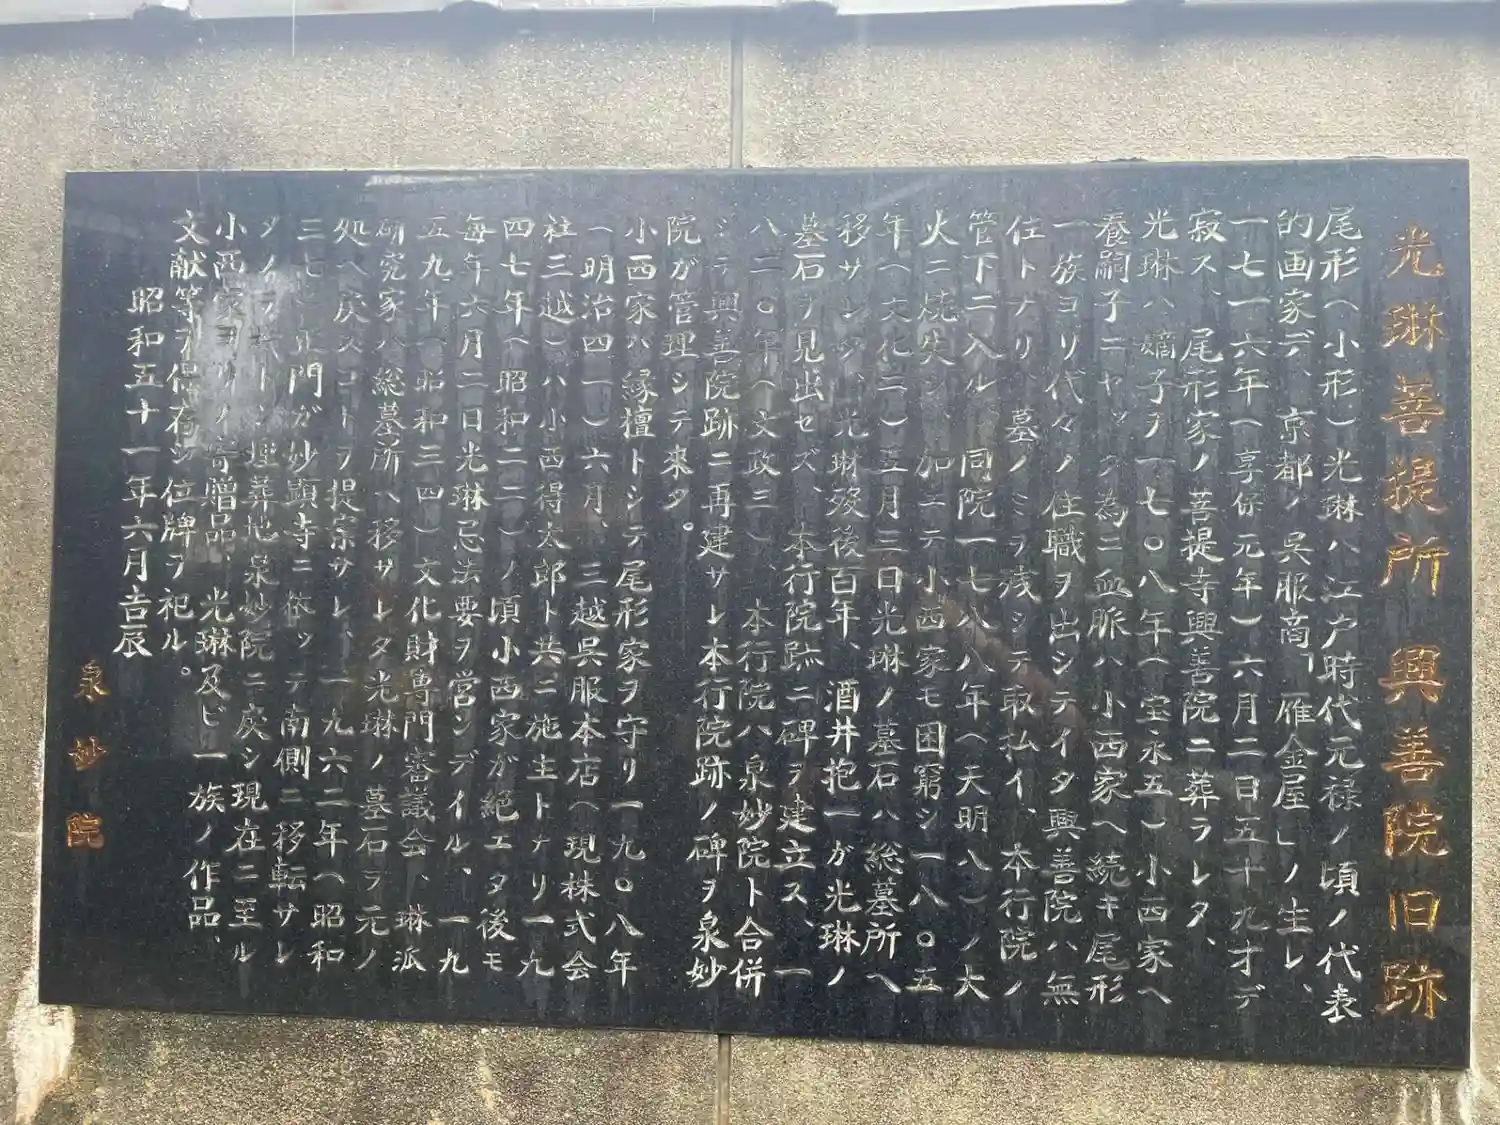 光琳菩提所 興善院旧跡
尾形（小形）光琳ハ江戸時代元禄ノ頃ノ代表
的画家デ、京都ノ呉服商「雁金屋」ノ生レ、
一七一六年（享保元年）六月二日五十九才デ
寂ス、尾形家ノ菩提寺興善院ニ葬ラレタ、
光琳ハ嫡子ヲ一七〇八年（宝永五）小西家ヘ
養嗣子ニヤッタ為ニ血脈ハ小西家ヘ続キ尾形
一族ヨリ代々ノ住職ヲ出シテイタ興善院ハ無
住トナリ、墓ノミヲ残シテ取払イ、本行院ノ
管下ニ入ル、同院一七八八年（天明八）ノ大
火ニ焼失シ、加エテ小西家モ困窮シ一八〇五
年（文化二）五月三日光琳ノ墓石ハ総墓所ヘ
移サレタ、光琳歿後百年、酒井抱一ガ光琳ノ
墓石ヲ見出セズ、本行院跡ニ碑ヲ建立ス、一
八二〇年（文政三）、本行院ハ泉妙院ト合併
シテ興善院跡ニ再建サレ本行院跡ノ碑ヲ泉妙
院が管理シテ来タ。
小西家ハ縁檀トシテ尾形家ヲ守リ一九〇八年
（明治四一）六月、三越呉服本店（現株式会
社三越）ハ小西得太郎ト共ニ施主トナリ一九
四七年（昭和二二）ノ頃小西家が絶エタ後モ
毎年六月二日光琳忌法要ヲ営ンデイル、一九
五九年（昭和三四）文化財専門審議会、琳派
研究家ハ総墓所ヘ移サレタ光琳ノ墓石ヲ元ノ
処ヘ戻スコトヲ提案サレ、一九六二年（昭和
三七 正門ガ妙顕寺ニ依ッテ南側ニ移転サレ
タノヲ 埋葬地泉妙院ニ戻シ現在ニ至ル
小西家ヨリノ寄贈品、光琳及ビ一族ノ作品、
文献等ヲ保存シ位牌ヲ祀ル。
昭和五十一年六月吉辰
泉妙院